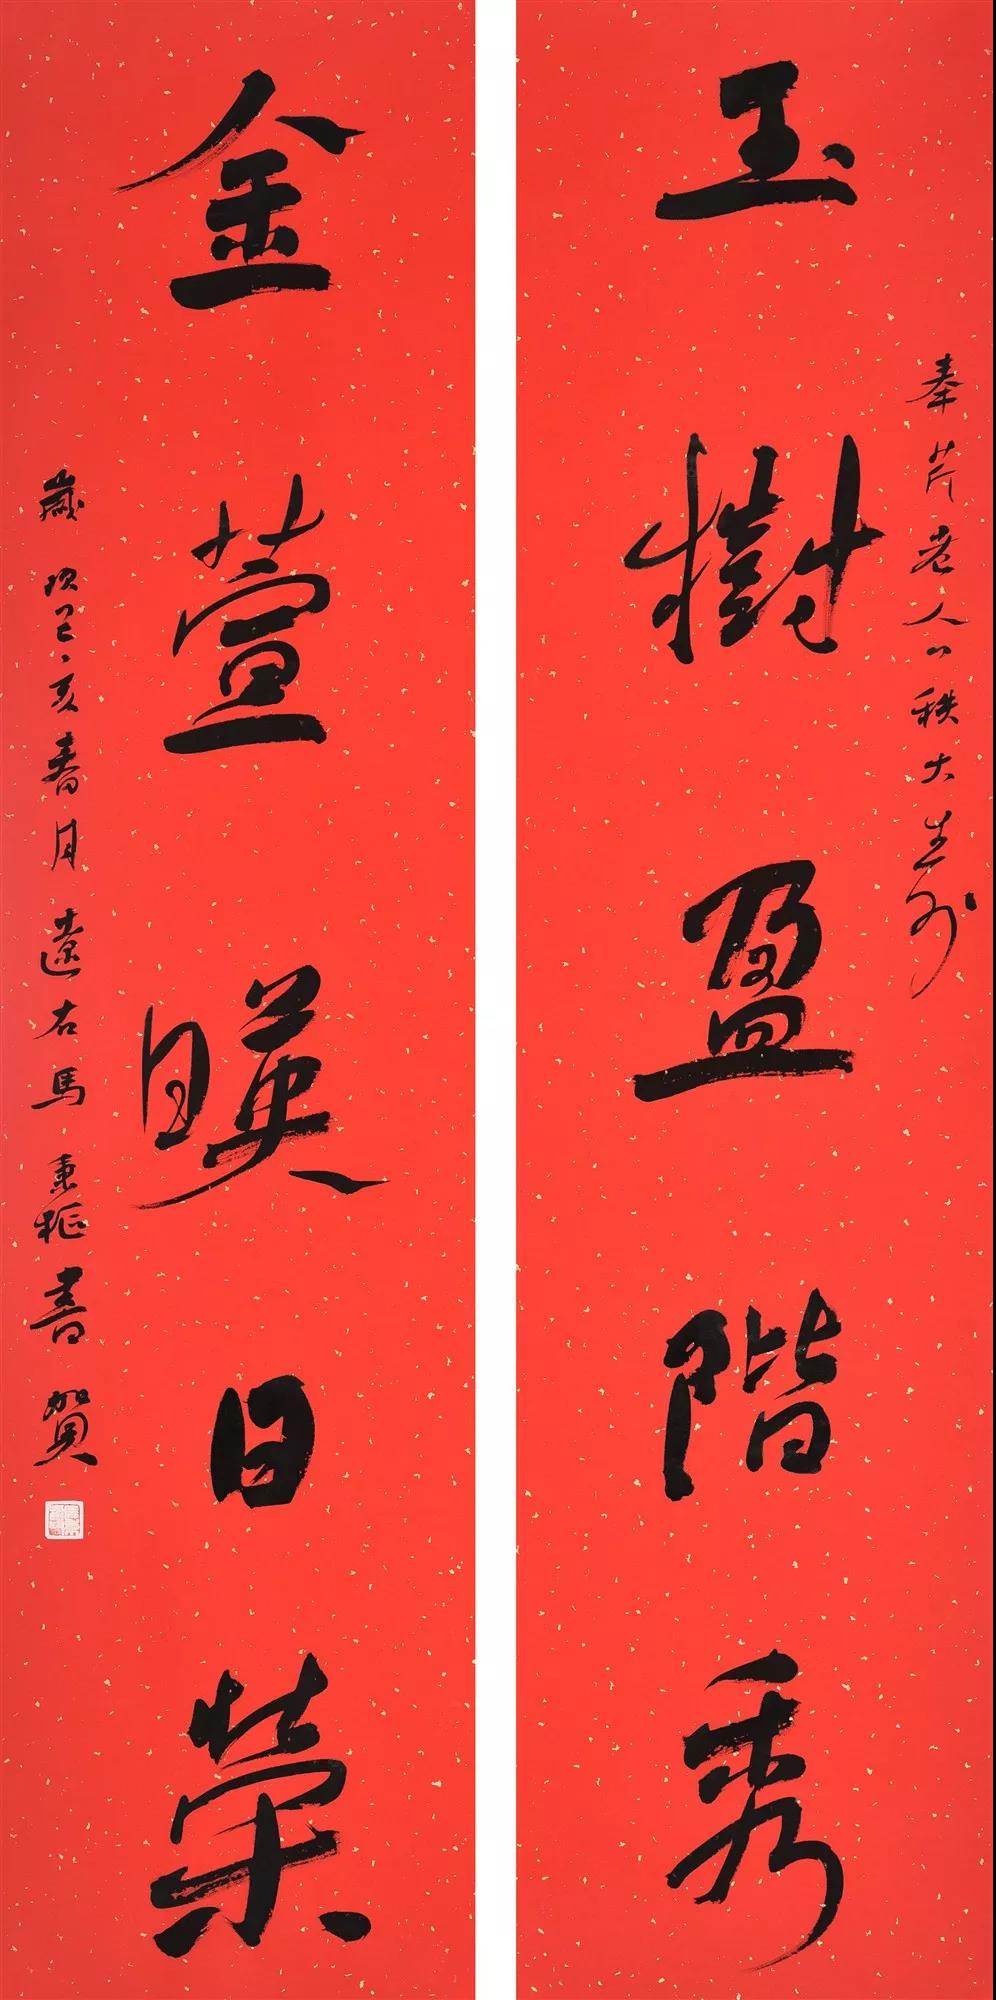 玉樹盈階秀
奉芹老人八秩大
金萱暎日榮
歲次己亥春月遼右馬秉枢書賀